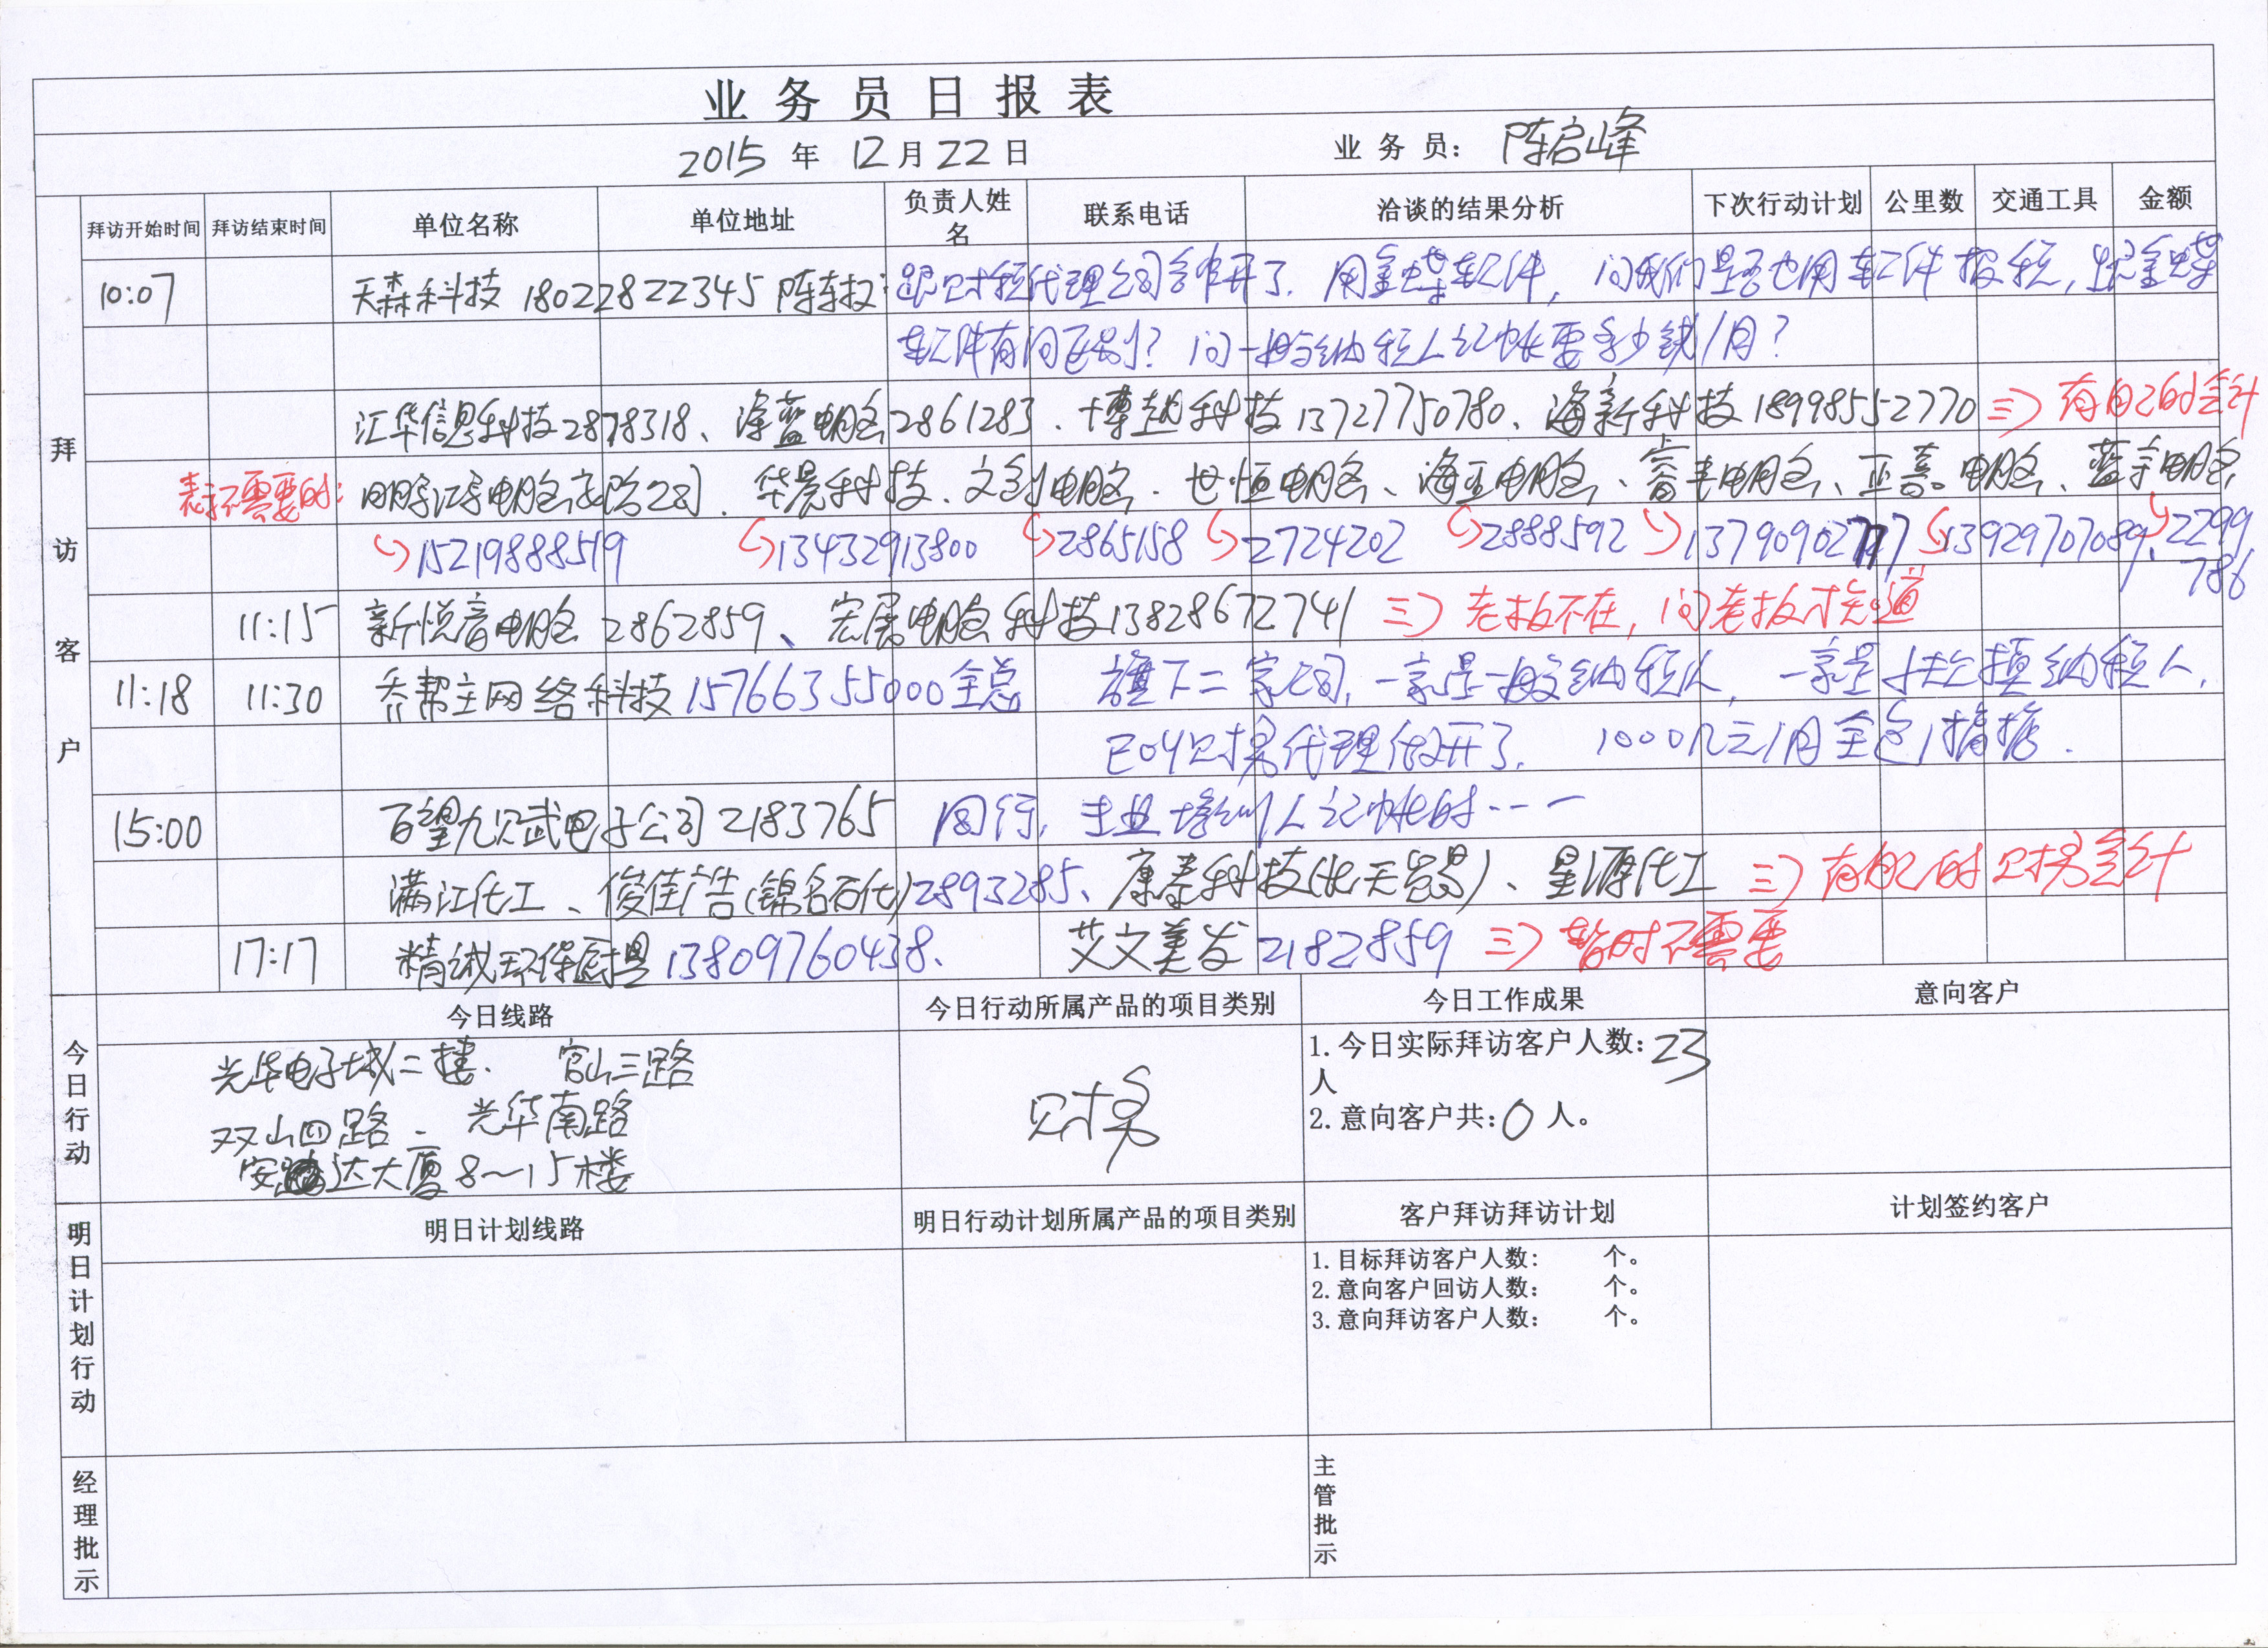 业务员日报表
2015 年 12 月 22 日 业务员: 陈启峰
拜访客户
拜访开始时间 拜访结束时间 单位名称 单位地址 负责人姓名 联系电话 洽谈的结果分析 下次行动计划 公里数 交通工具 金额
10:07 天森科技 18022822345 跟财税代理公司合作开了. 用金蝶软件, 问我们是否也用软件报税, 金蝶
软件有何区别? 问一般纳税人记帐要多少钱/月?
汇华信息科技2878318、海蓝电脑2861283、博越科技13727750780、海新科技18998552770 => 有自己的会计
表示不需要的: 电脑有限公司、华晨科技、文创电脑、世恒电脑、海亚电脑、睿丰电脑、亚嘉电脑、蓝宇电脑
15219888519 13432913800 2865158 2724202 2888592 13790902777 13929707089、2299786
11:15 新悦音电脑 2862859、宏展电脑科技13828672741 => 老板不在, 问老板才知道
11:18 11:30 乔帮主网络科技15766355000全总 旗下二家公司, 一家是一般纳税人, 一家是小规模纳税人,
已叫财务代理做开了, 1000几元/月全包
15:00 百望九次武电子公司2183765 同行, 专业培训人记帐的---
满江化工、俊佳广告(锦名石化)2893285、康泰科技(化天贸易)、星源化工 => 有自己的财务会计
17:17 精诚环保厨具13809760438、 艾文美发2182859 => 暂时不需要
今日行动
今日线路 今日行动所属产品的项目类别 今日工作成果 意向客户
光华电子城二楼、 官山三路
双山四路、 光华南路
安达大厦8~15楼
财务
1.今日实际拜访客户人数: 23
人
2.意向客户共: 0 人。
明日计划行动
明日计划线路 明日行动计划所属产品的项目类别 客户拜访拜访计划 计划签约客户
1.目标拜访客户人数: 个。
2.意向客户回访人数: 个。
3.意向拜访客户人数: 个。
经理批示
主管批示